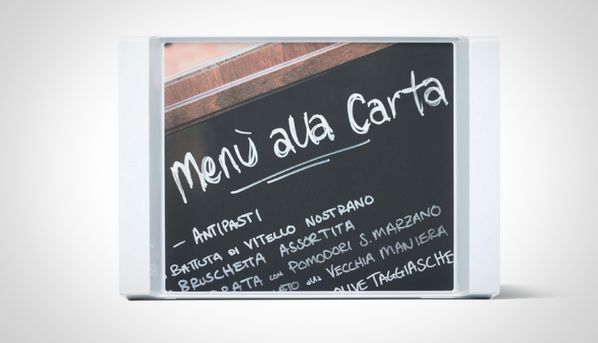 Menù alla Carta
– ANTIPASTI
BATTUTA DI VITELLO NOSTRANO
BRUSCHETTA ASSORTITA
CON POMODORI S. MARZANO
ALLA VECCHIA MANIERA
OLIVE TAGGIASCHE